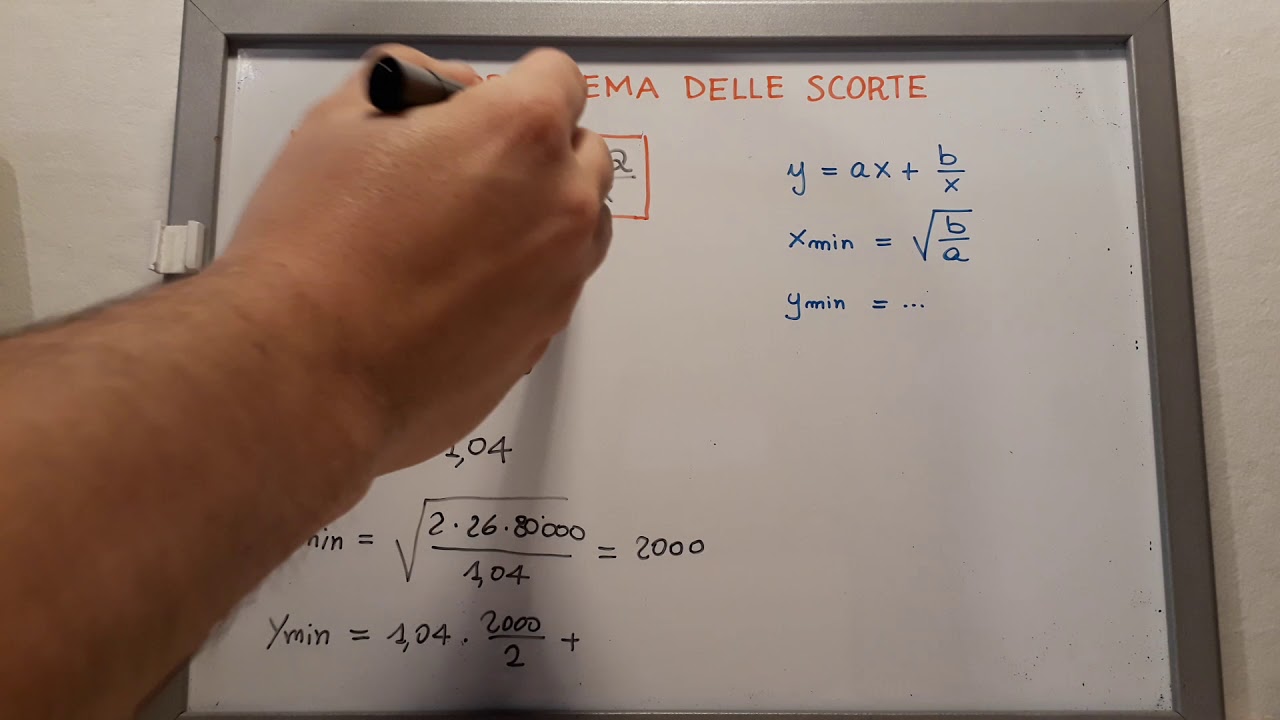 DELLE SCORTE
y = ax + b/x
xmin = √(b/a)
ymin = ...
1,04
= √(2·26·80'000/1,04) = 2000
Ymin = 1,04 · 2000/2 +